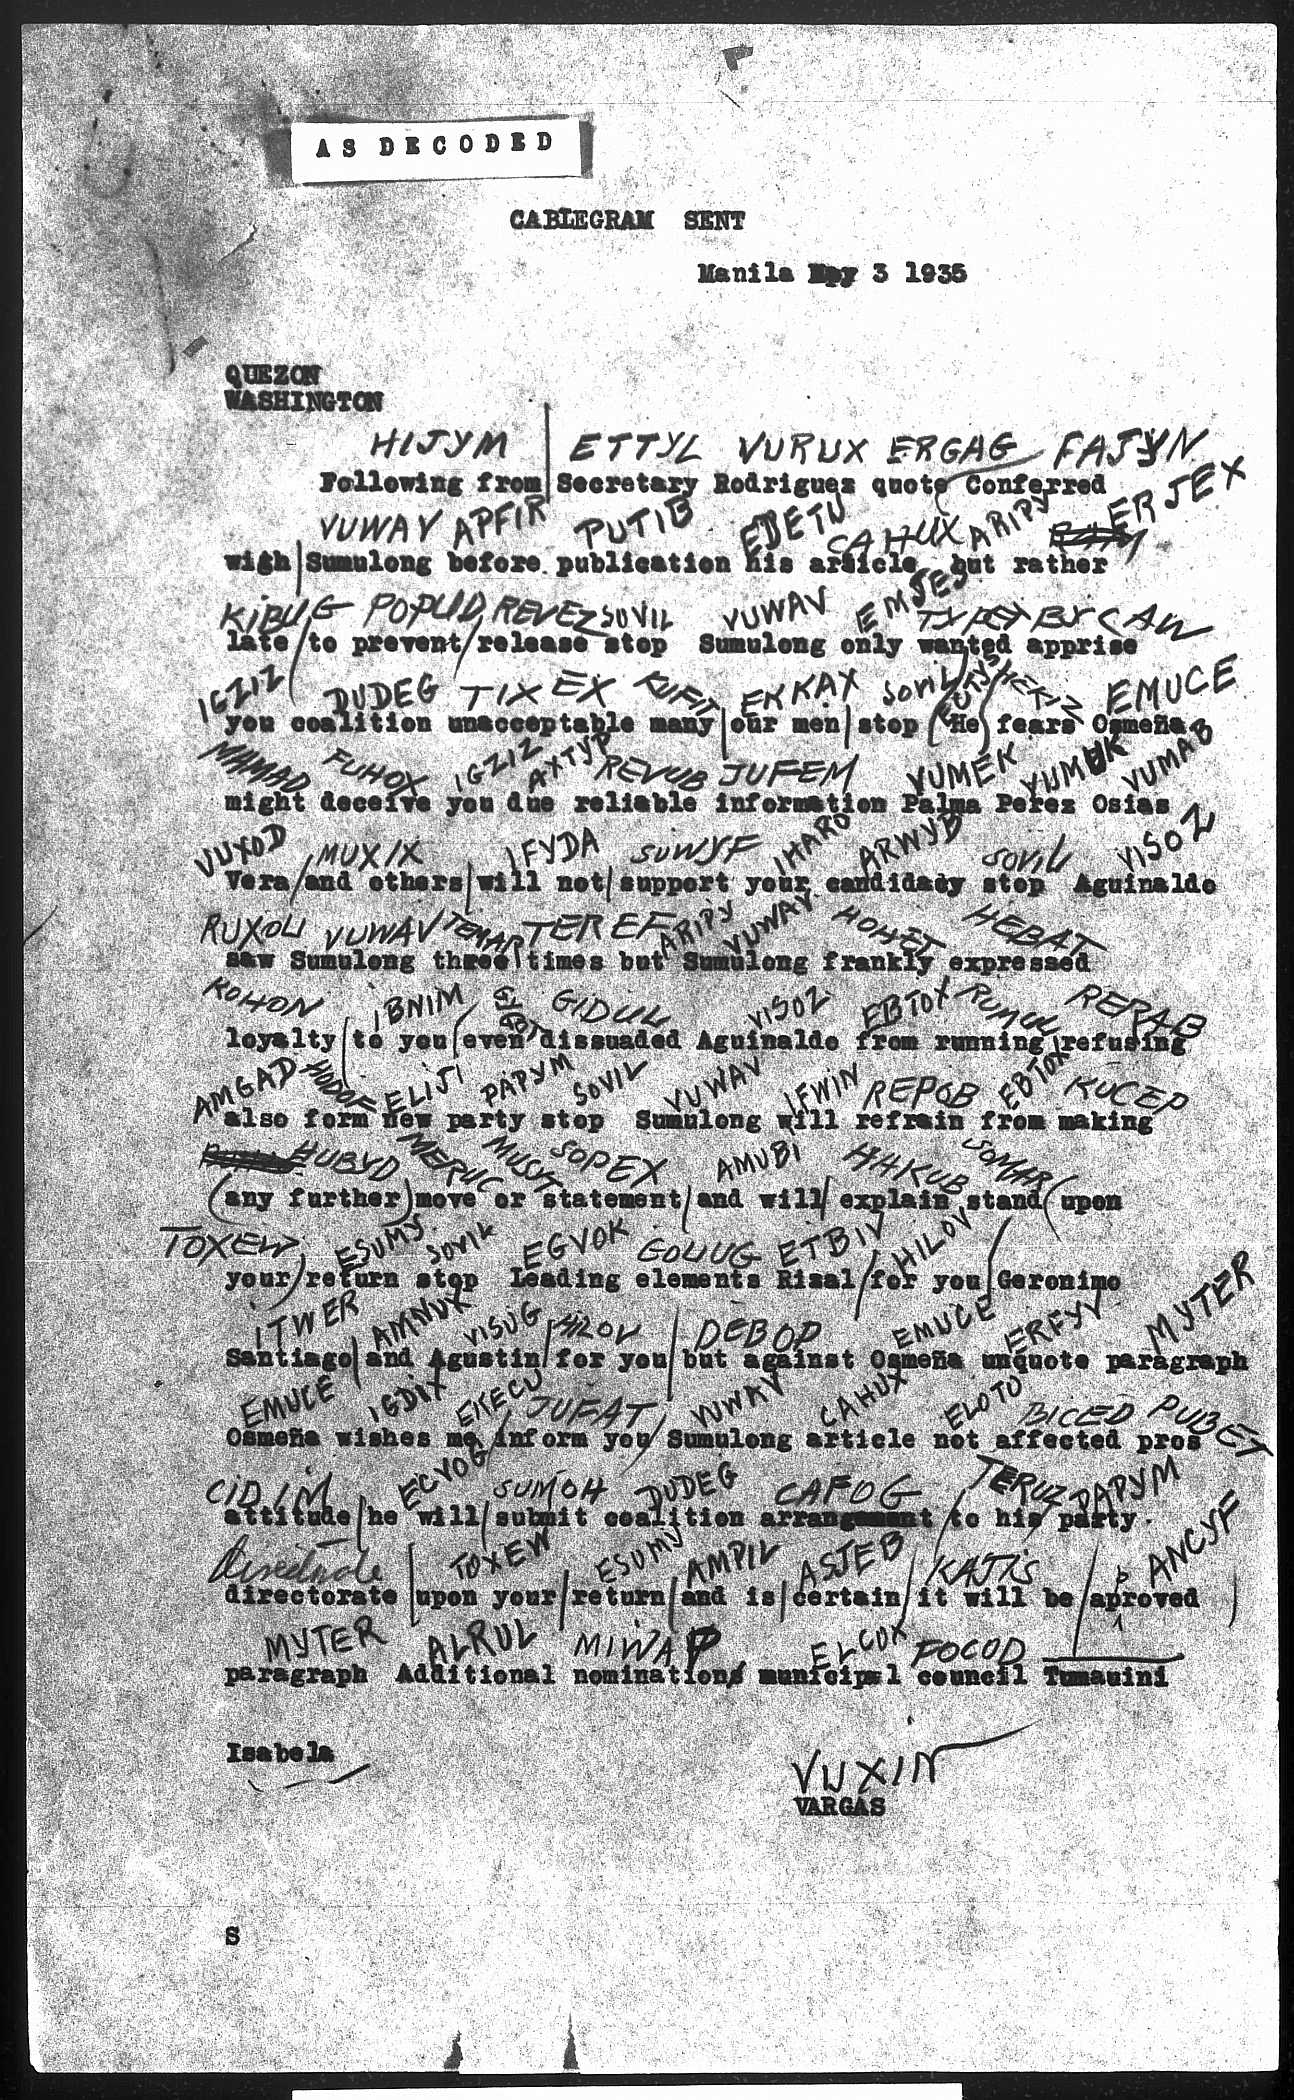 AS DECODED
CABLEGRAM SENT
Manila May 3 1935
QUEZON
WASHINGTON
HIJYM ETTYL VURUX ERGAG FAJYN
Following from Secretary Rodriguez quote Conferred
VUWAV APFIR PUTIB EDETU CAHUX ARIPY ERJEX
with Sumulong before publication his article but rather
KIBUG POPUD REVEZ SOVIL VUWAV EMJES
late to prevent release stop Sumulong only wanted apprise
IGZIZ DUDEG TIXEX KUFIT EKKAX SOVIL HEKIZ EMUCE
you coalition unacceptable many our men stop He fears Osmeña
MAMAD FUHOX IGZIZ AXTYP REVUB JUFEM YUMEK YUMUK VUMAB
might deceive you due reliable information Palma Perez Osias
VUXOD MUXIX IFYDA SUWYF IHARO ARWYD SOVIL VISOZ
Vera and others will not support your candidacy stop Aguinaldo
RUXOU VUWAV TEMAR TEREF ARIPY VUWAV HOHET HEBAT
saw Sumulong three times but Sumulong frankly expressed
KOHON IBNIM GYGOT GIDUL VISOZ EBTOX RUMUL RERAB
loyalty to you even dissuaded Aguinaldo from running refusing
AMGAD HODOF ELIJI PAPYM SOVIL VUWAV IFWIN REPOB EBTOX KUCEP
also form new party stop Sumulong will refrain from making
HUBYD MERUC MUSIT SOPEX AMUBI HAKUB SOMAR
any further move or statement and will explain stand upon
TOXEW ESUMY SOVIL EGVOK GOLUG ETBIV HILOV
your return stop Leading elements Rizal for you Geronimo
ITWER AMNUX VISUG HILOV DEBOP EMUCE ERFYV MYTER
Santiago and Agustin for you but against Osmeña unquote paragraph
EMUCE IGDIX EKECU JUFAT VUWAV CAHUX ELOTO BICED PUBET
Osmeña wishes me inform you Sumulong article not affected pros
CIDIM ECVOG SUMOH DUDEG CAFOG TERUZ PAPYM
attitude he will submit coalition arrangement to his party
Directorate TOXEW ESUMY AMPIL ASJEB KAJIS P ANCYF
directorate upon your return and is certain it will be aproved
MYTER ALRUL MIWAP ELCOX FOCOD
paragraph Additional nominations municipal council Tumauini
Isabela
VUXIN
VARGAS
S